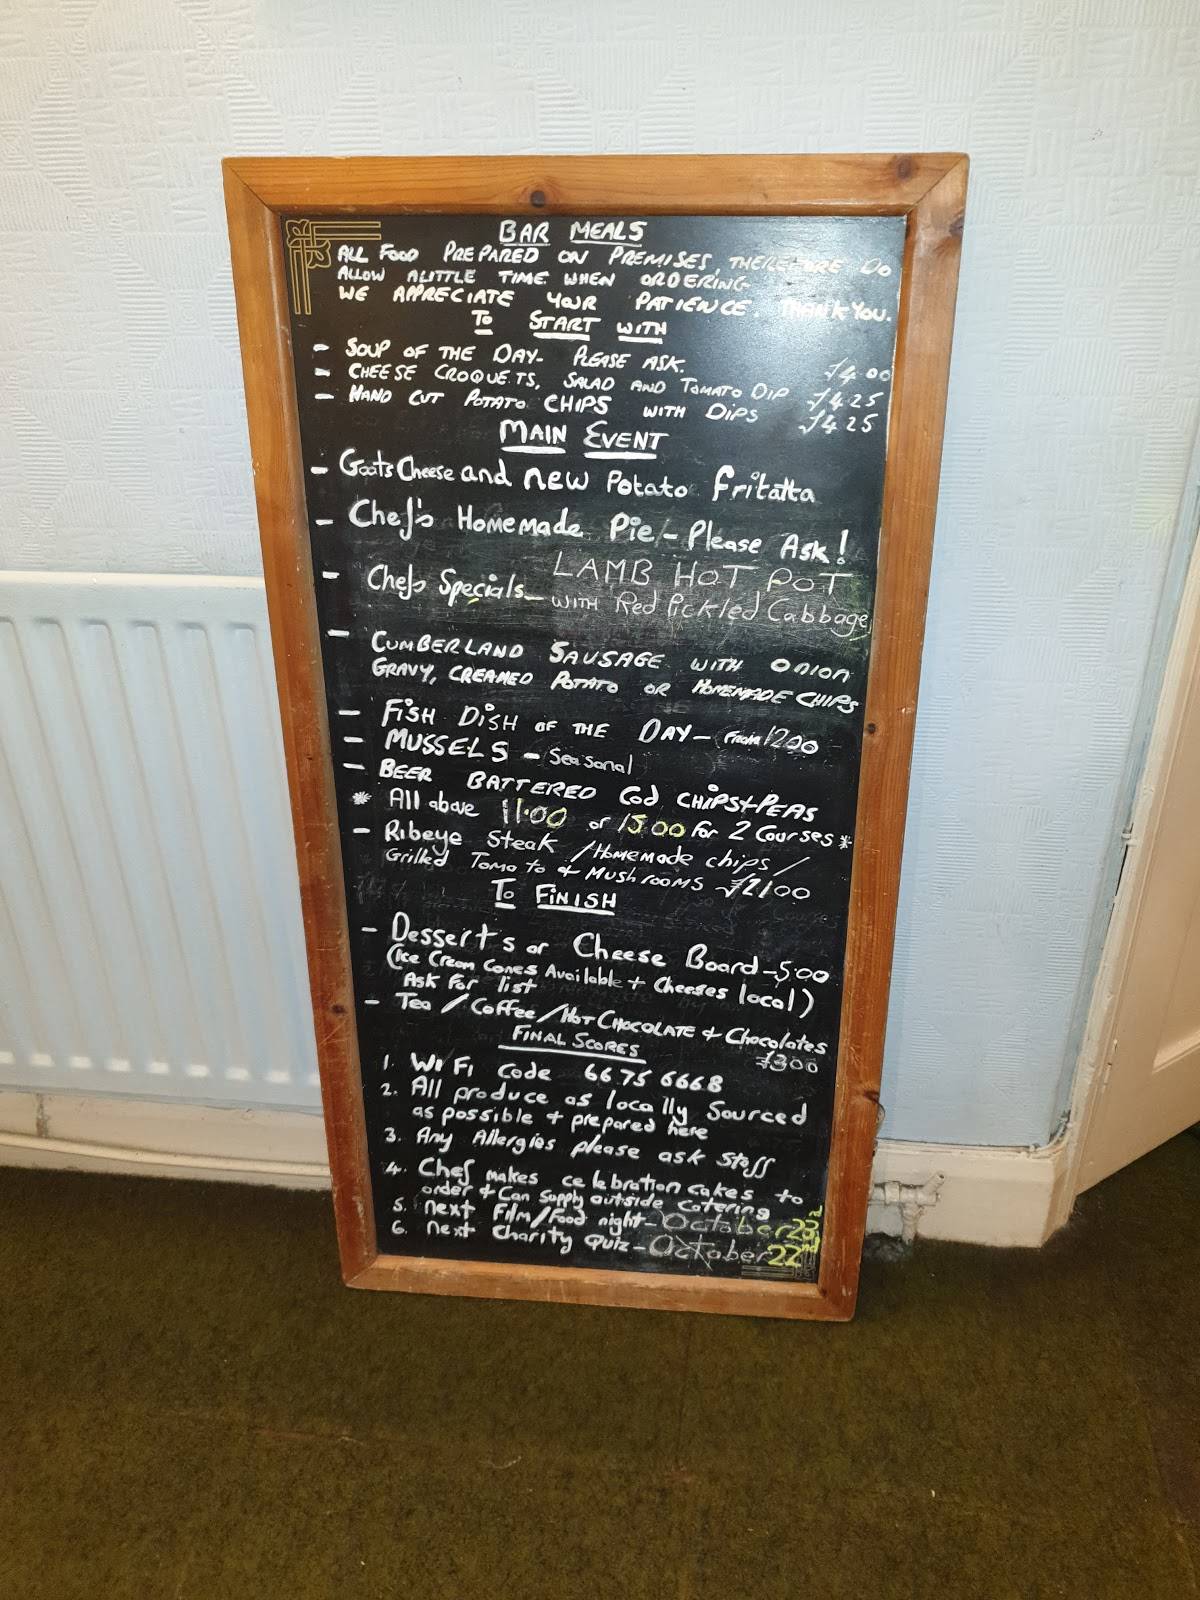 BAR MEALS
ALL FOOD PREPARED ON PREMISES, THEREFORE DO
ALLOW ALITTLE TIME WHEN ORDERING
WE APPRECIATE YOUR PATIENCE. THANKYOU.
TO START WITH
- SOUP OF THE DAY- PLEASE ASK. £4.00
- CHEESE CROQUETS, SALAD AND TOMATO DIP £4 25
- HAND CUT POTATO CHIPS WITH DIPS £4 25
MAIN EVENT
- Goats Cheese and new Potato fritatta
- Chef's Homemade Pie - Please Ask!
- Chefs Specials - LAMB HOT POT
WITH Red Pickled Cabbage
- CUMBERLAND SAUSAGE WITH ONION
GRAVY, CREAMED POTATO OR HOMEMADE CHIPS
- FISH DISH OF THE DAY - From 1200
- MUSSELS - Seasonal
- BEER BATTERED Cod CHIPS+PEAS
* All above 11.00 or 15.00 for 2 Courses *
- Ribeye Steak / Homemade chips /
Grilled Tomato + Mushrooms £21.00
TO FINISH
- Desserts or Cheese Board - 5.00
(Ice Cream Cones Available + Cheeses local)
Ask For list
- Tea / Coffee / HOT CHOCOLATE + Chocolates
£300
FINAL SCORES
1. WI FI Code 66 75 6668
2. All produce as locally Sourced
as possible + prepared here
3. Any Allergies please ask Staff
4. Chef makes celebration cakes to
order + Can Supply outside catering
5. next Film/Food night - October 23rd
6. next Charity Quiz - October 22nd